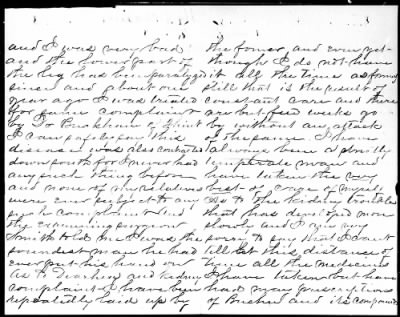 and I was very bad
and the lower part of
the leg has been paralyzed
since and about one
year ago I was treated
for same complaint
by Dr
I can safely say this
disease was also contracted
down south for I never had
any such thing before
and none of my relatives
were ever subject to any
such complaint and
the examining surgeon
Smith told me I was the
soundest man he had
ever put his hand on
As to Diarrhea and Kidney
complaint I have been
repeatedly laid up by
the former, and even yet
though I do not have
it all the time as formerly
still that is the result of
constant care and there
are but few weeks go
by without an attack
of the same. I have
always been a strictly
temperate man and
have taken the very
best of care of myself
As to the kidney troubles
that has developed more
slowly and I am very
sorry to say that I can't
tell at this distance of
time all the medicine
I have taken but have
had many prescriptions
of Buchu and its compounds